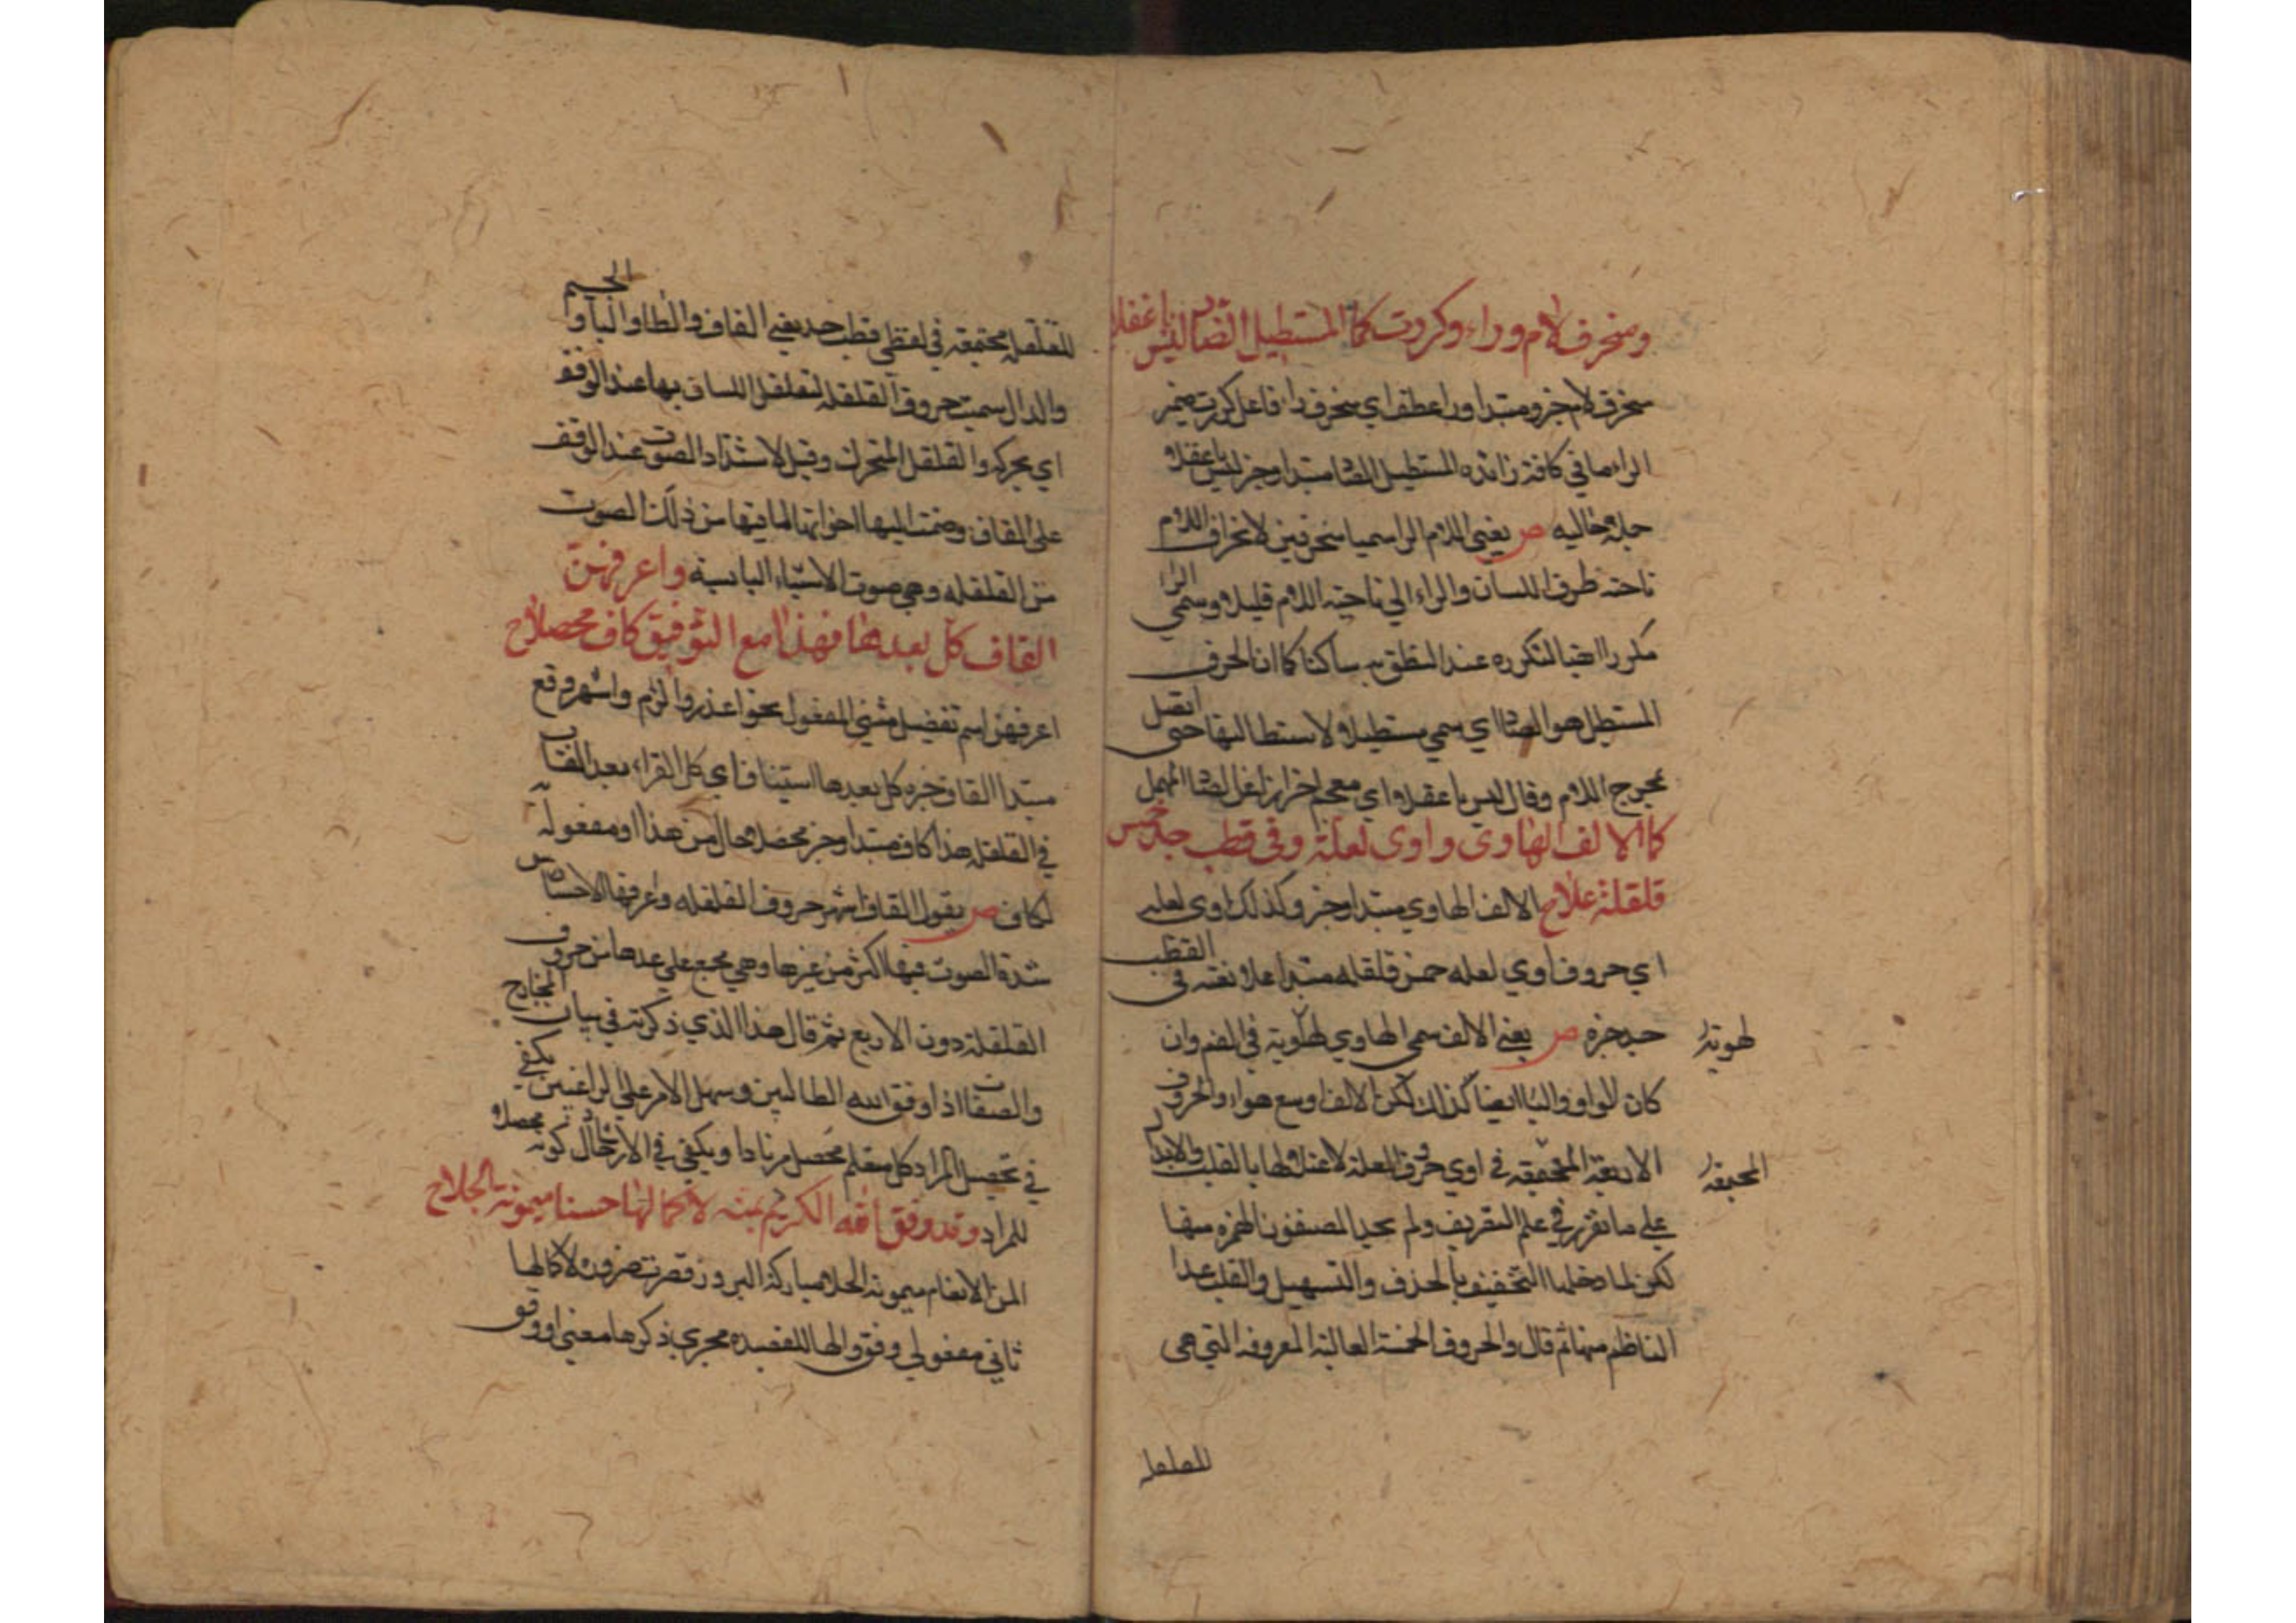 ومنحرف لام وراء وكررت كما المستطيل الضاد ليس باغفلا
منحرف لام خبر ومبتدا ورا عطف اي منحرف را فاعل كررت ضمير
الراء ما في كافة زائدة المستطيل الضاد مبتدا وخبر ليس باغفلا
جملة حالية ص يعني اللام الرا سميا منحرفين لانحراف اللام
ناحته طرف اللسان والراء الي ناحية اللام قليلا وسمي الرا
مكررا ايضا لتكرره عند النطق به ساكنا كما ان الحرف
المستطيل هو الضاد اي سمي مستطيلا لاستطالتها حتى اتصل
بمخرج اللام وقال ليس باغفلا اي معجم احترازا عن الصاد المهمل
كما الالف الهاوي واوي لعلة وفي قطب جد خمس
قلقلة علا ح الالف الهاوي مبتدا وخبر وكذلك اوي لعلة
اي حروف اوي لعله خمس قلقله مبتدا علا نعته في القطب
جد خبره ص يعني الالف سمي الهاوي لهويه في الفم وان
لهويته
كان الواو واليا ايضا كذلك لكن الالف اوسع هواء والحروف
الاربعة المجتمعة في اوي حروف العلة لاعتلالها بالقلب والابدال
المجتمعة
علي ما تقرر في علم التصريف ولم يعد المصنفون الهمزه منها
لكن لما دخلها التخفيف بالحذف والتسهيل والقلب عدا
الناظم منها ثم قال والحروف الخمسة العالية المعروفة التي هي
للقلقلة
للقلقلة مجتمعة في لفظي قطب جد يعني القاف والطا والبا والجيم
والدال سميت حروف القلقلة لتقلقل اللسان بها عند الوقف
اي بحركه والقلقل المتحرك وقيل لاشتداد الصوت عند الوقف
على القاف وضمت اليها اخواتها لما فيها من ذلك الصوت
من القلقلة وهي صوت الاشياء اليابسة واعرفهن
القاف كل يعدها فهذا مع التوفيق كاف محصلا ح
اعرفهن اسم تفضيل مبني المفعول نحو اعذر والزم واشهر وقع
مبتدا القاف خبره كل يعدها استيناف اي كل القراء يعد القاف
في القلقلة هذا كاف مبتدا وخبر محصلا حال من هذا او مفعوله
لكاف ص يقول القاف اشهر حروف القلقله واعرفها لاحساس
شدة الصوت فيها اكثر من غيرها وهي مجمع علي عدها من حروف
القلقلة دون الاربع ثم قال هذا الذي ذكرته في بيان المخارج
والصفات اذا وفق الله الطالبين وسهل الامر علي الراغبين يكفي
في تحصيل المراد كل متعلم محصل مرتادا ويكفي في الارتحال كونه محصلا
للمراد وقد وفق الله الكريم بمنه لاكمالها حسنا ميمونة الجلا ح
المن الانعام ميمونة الجلا مباركة البروز قصرت ضرورة لاكمالها
ثاني مفعولي وفق والها للقصيده مجري ذكرها معني او وفق